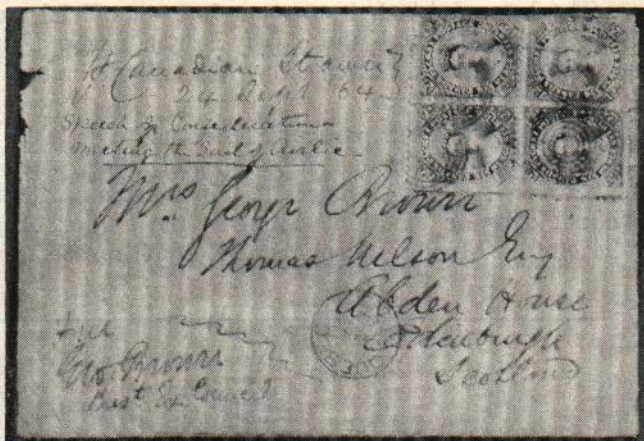 Canadian Steamer
24 Sept 64
Speech on Confederation
Meeting the Earl of Airlie
Mrs. George Brown
Thomas Nelson Esq
Abden House
Edinburgh
Scotland
Geo Brown
Prest Ex. Council